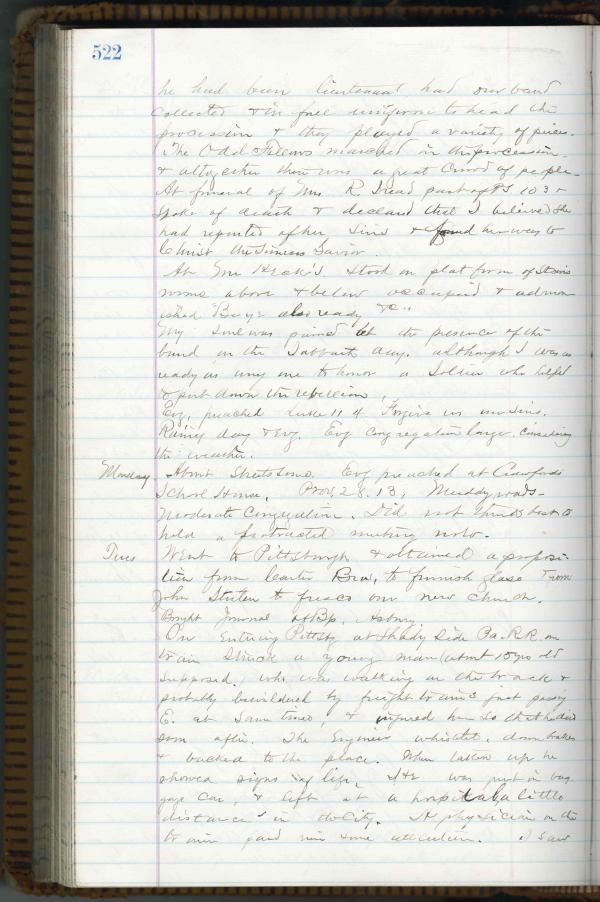 522
he had been lieutenant had our band
collected & in full uniform to head the
procession & they played a variety of pieces.
The Odd Fellows marched in the procession
& altogether there was a great crowd of people.
At funeral of Mrs. R. I read part of Ps 103 &
spoke of death & declared that I believed she
had repented of her sins & found her way to
Christ the Sinners Savior.
At Mr stood on platform of stairs
rooms above & below occupied & admon
ished "Be ye also ready &c."
My soul was pained at the presence of the
band on the Sabbath day, although I was as
ready as any one to honor a Soldier who helped
to put down the rebellion.
Evg, preached Luke 11.4 Forgive us our sins.
Rainy day & Evg. Evg congregation large, considering
the weather.
Monday. About Evg preached at Crawfords
School House, Prov. 28.13, Muddy roads
Moderate Congregation. Did not think best to
hold a protracted meeting now.
Tues Went to Pittsburgh & obtained a proposi-
tion from Bro, to furnish glass & from
John to fresco our new church.
Bought Journal of Bp. Asbury.
On entering Pittsbg at Shady Side Pa. R.R. our
train struck a young man (about 15 yrs old
supposed) who was walking on the track &
probably bewildered by freight train just passing
E. at same time, & injured him so that he died
soon after. The Engineer whistled, down brakes
& backed to the place. When taken up he
showed signs of life, & He was put in bag
gage car, & left at a hospital a little
distance in the City. A physician on the
train paid him some attention. I saw